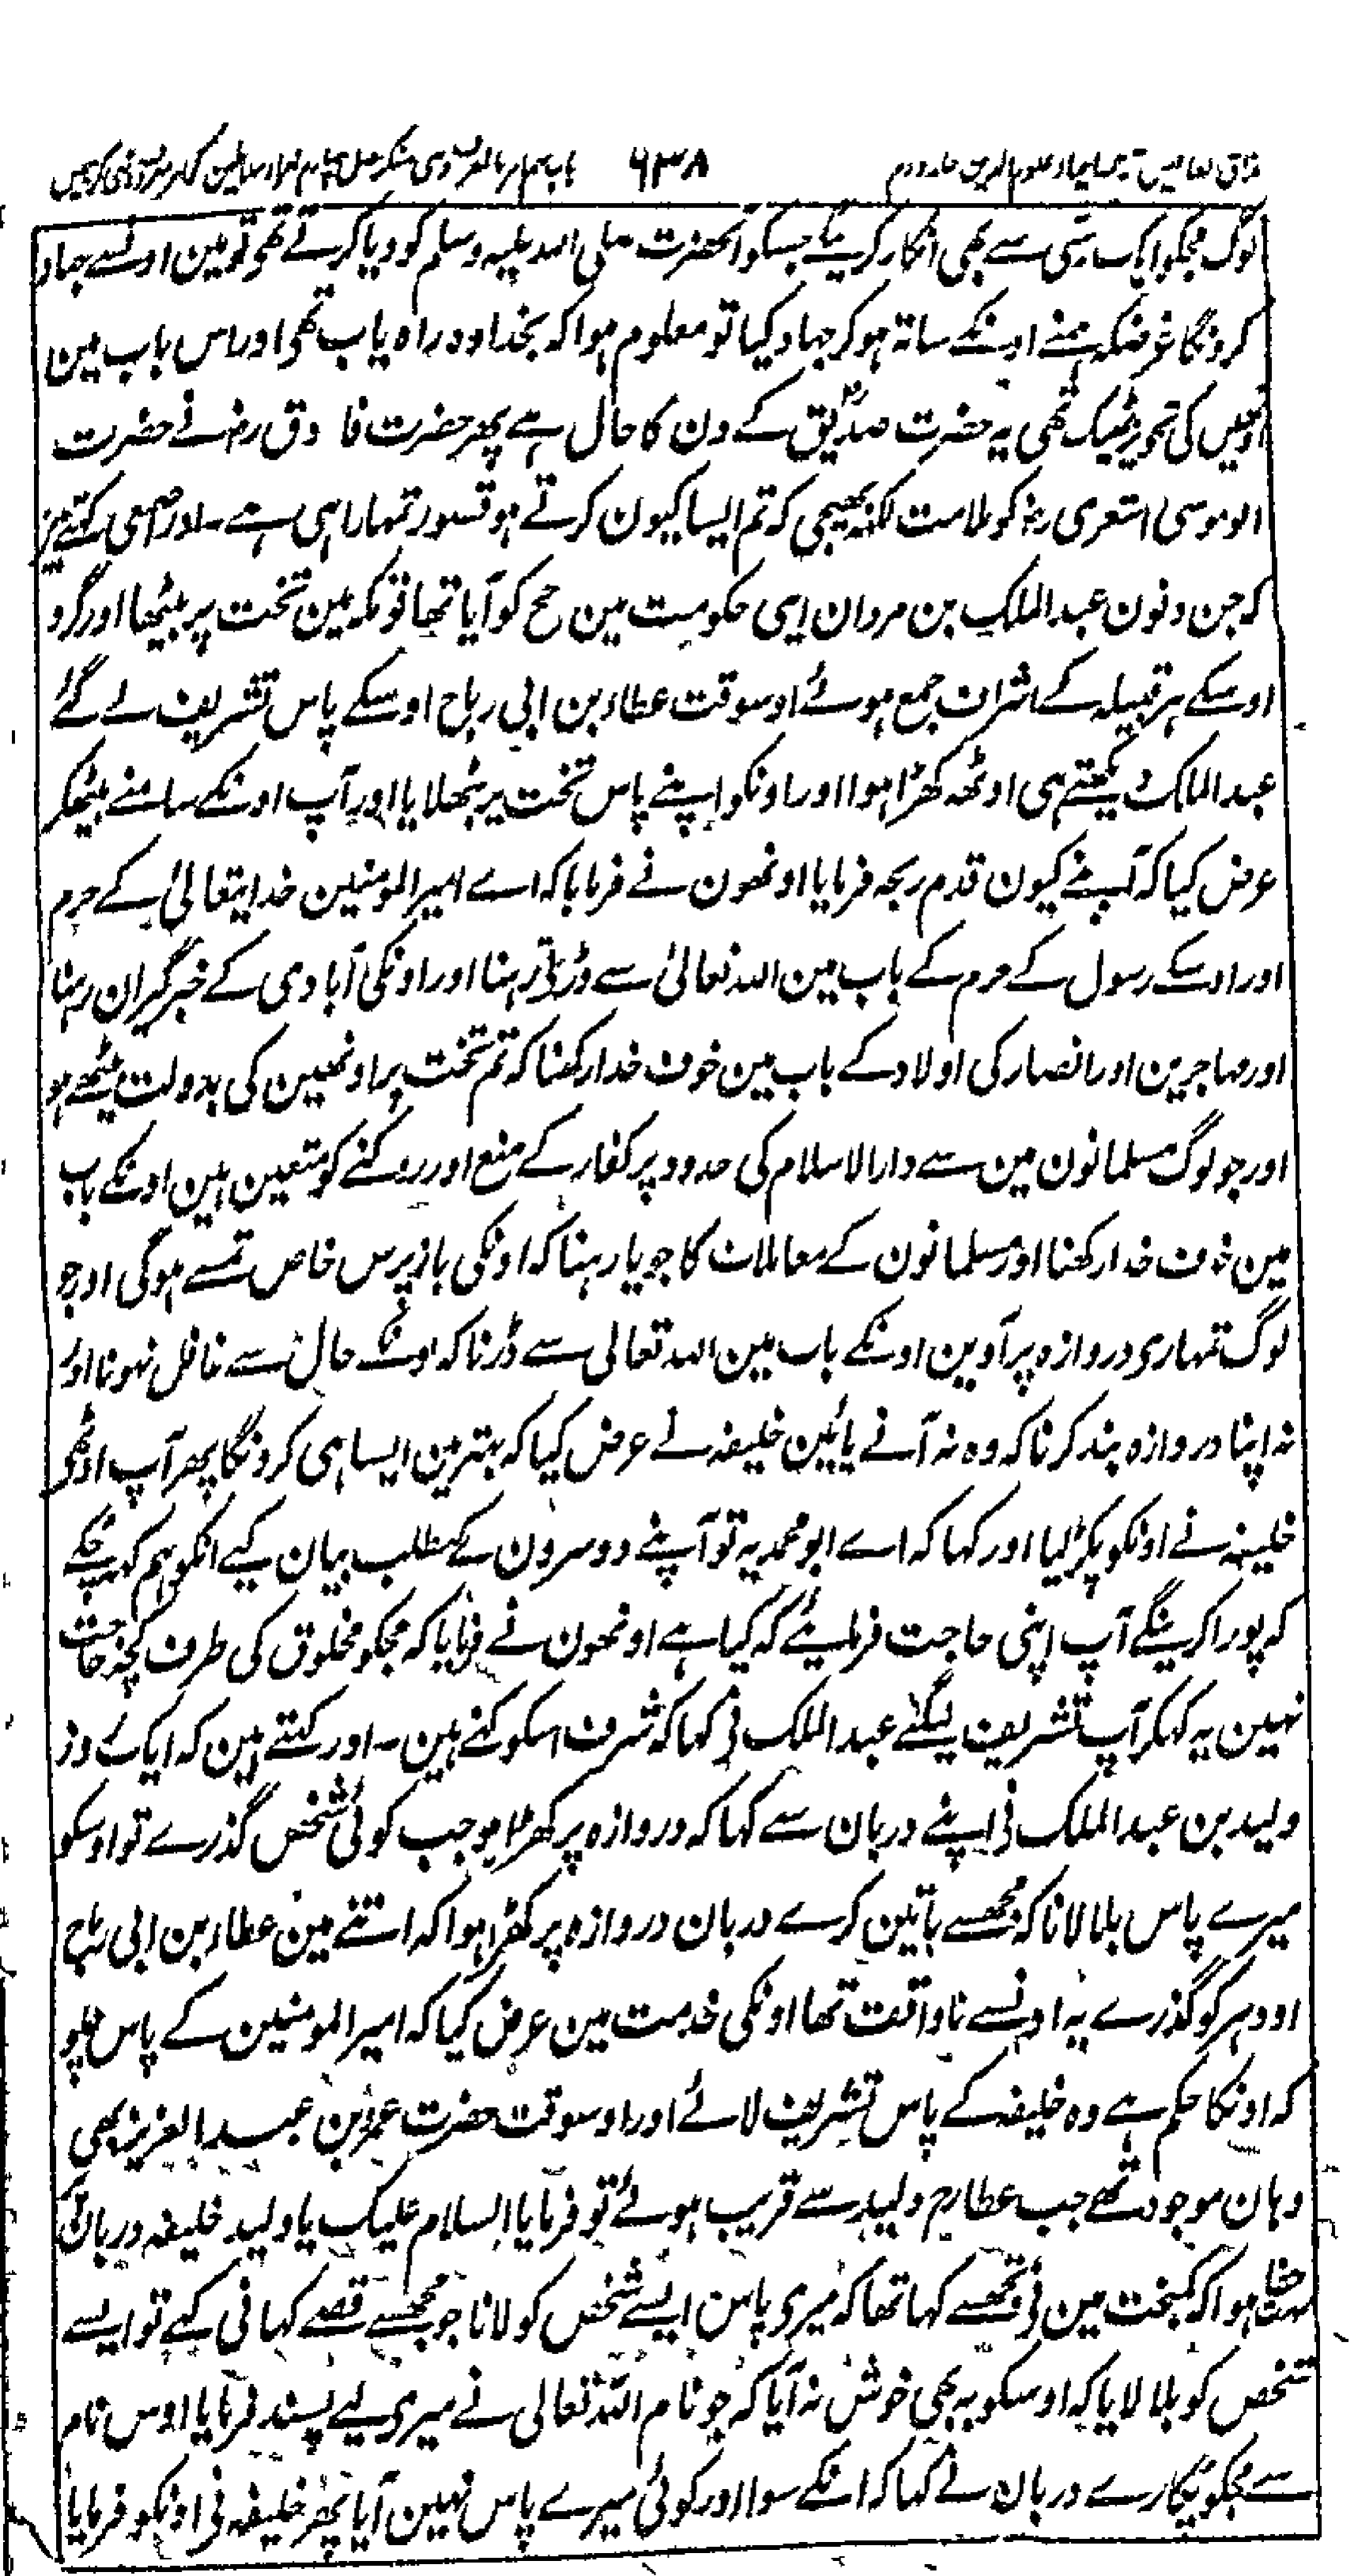 مذاق العارفین ترجمہ احیاء علوم الدین جلد دوم ۶۳۸ باب
لوگ مجکو ایک رسی سے بھی انکار کرینگے جسکو آنحضرت صلی اللہ علیہ وسلم کو دیا کرتے تھے تو مین اونسے جہاد
کرونگا غرضکہ ہمنے اونکے ساتہ ہوکر جہاد کیا تو معلوم ہوا کہ بخدا وہ راہ یاب تھی اور اس باب مین
اونھیں کی تجویز ٹھیک تھی یہ حضرت صدیق کے دن کا حال ہے پھر حضرت فاروق رض نے حضرت
ابو موسی اشعری رض کو ملامت لکھ بھیجی کہ تم ایسا کیون کرتے ہو قسور تمہارا ہی ہے ۔ اور اصمعی کہتے ہین
کہ جن دنون عبد الملک بن مروان اپنی حکومت مین حج کو آیا تھا تو مکہ مین تخت پر بیٹھا اور گرد
اوسکے ہر قبیلہ کے اشراف جمع ہوئے اوسوقت عطاء بن ابی رباح اوسکے پاس تشریف لے گئے
عبد الملک دیکھتے ہی اوٹھہ کھڑا ہوا اور اونکو اپنے پاس تخت پر بٹھلایا اور آپ اونکے سامنے بیٹھکر
عرض کیا کہ آپنے کیون قدم رنجہ فرمایا اونھون نے فرمایا کہ اے امیر المومنین خدایتعالیٰ کے حرم
اور اوسکے رسول کے حرم کے باب مین اللہ تعالیٰ سے ڈرتے رہنا اور اونکی آبادی کے خبرگیران رہنا
اور مہاجرین اور انصار کی اولاد کے باب مین خوف خدا رکھنا کہ تم تخت پر اونھین کی بدولت بیٹھے ہو
اور جو لوگ مسلمانون مین سے دار الاسلام کی حدود پر کفار کے منع اور روکنے کو متعین ہین اونکے باب
مین خوف خدا رکھنا اور مسلمانون کے معاملات کا جویا رہنا کہ اونکی بازپرس خاص تمسے ہوگی اور جو
لوگ تمہاری دروازہ پر آوین اونکے باب مین اللہ تعالی سے ڈرنا کہ اونکے حال سے غافل نہونا اور
نہ اپنا دروازہ بند کرنا کہ وہ نہ آنے پائین خلیفہ نے عرض کیا کہ بہتر مین ایسا ہی کرونگا پھر آپ اوٹھے
خلیفہ نے اونکو پکڑ لیا اور کہا کہ اے ابو محمد یہ تو آپنے دوسرون کے مطلب بیان کیے انکو ہم کہ چکے
کہ پورا کرینگے آپ اپنی حاجت فرمایئے کہ کیا ہے اونھون نے فرمایا کہ مجکو مخلوق کی طرف کچھ حاجت
نہین یہ کہکر آپ تشریف لیگئے عبد الملک نے کہا کہ شرف اسکو کہتے ہین ۔ اور کہتے ہین کہ ایک روز
ولید بن عبد الملک نے اپنے دربان سے کہا کہ دروازہ پر کھڑا ہو جب کوئی شخص گذرے تو اوسکو
میرے پاس بلا لانا کہ مجھسے باتین کرے دربان دروازہ پر کھڑا ہوا کہ اتنے مین عطاء بن ابی رباح
اودہر کو گذرے یہ اونسے ناواقف تھا اونکی خدمت مین عرض کیا کہ امیر المومنین کے پاس چلو
کہ اونکا حکم ہے وہ خلیفہ کے پاس تشریف لائے اور اوسوقت حضرت عمر بن عبد العزیز بھی
وہان موجود تھے جب عطا رح ولید سے قریب ہوئے تو فرمایا السلام علیک یا ولید خلیفہ دربان پر
بہت خفا ہوا کہ کمبخت مین نے تجھسے کہا تھا کہ میری پاس ایسے شخص کو لانا جو مجھسے قصے کہانی کہے تو ایسے
شخص کو بلا لایا کہ اوسکو یہ بھی خوش نہ آیا کہ جو نام اللہ تعالی نے میری لیے پسند فرمایا اوس نام
سے مجکو پکارے دربان نے کہا کہ انکے سوا اور کوئی میرے پاس نہین آیا پھر خلیفہ نے اونکو فرمایا